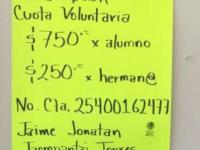 Cuota Voluntaria
$750.= x alumno
$250.= x herman@
No. Cta. 25400162477
Jaime Jonatan